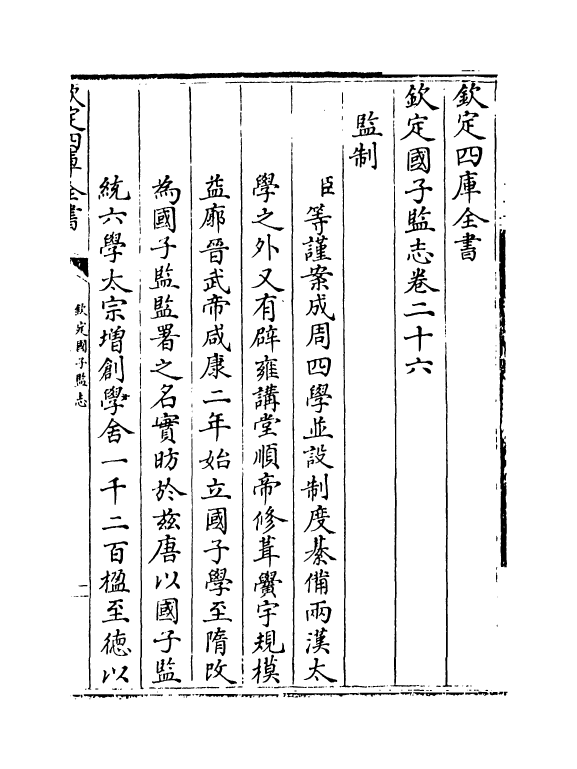 欽定四庫全書
欽定國子監志卷二十六
監制
臣等謹案成周四學並設制度綦備兩漢太
學之外又有辟雍講堂順帝修葺黌宇規模
益廓晉武帝咸康二年始立國子學至隋改
為國子監監署之名實昉於茲唐以國子監
統六學太宗增創學舍一千二百楹至德以
欽定四庫全書
欽定國子監志
一